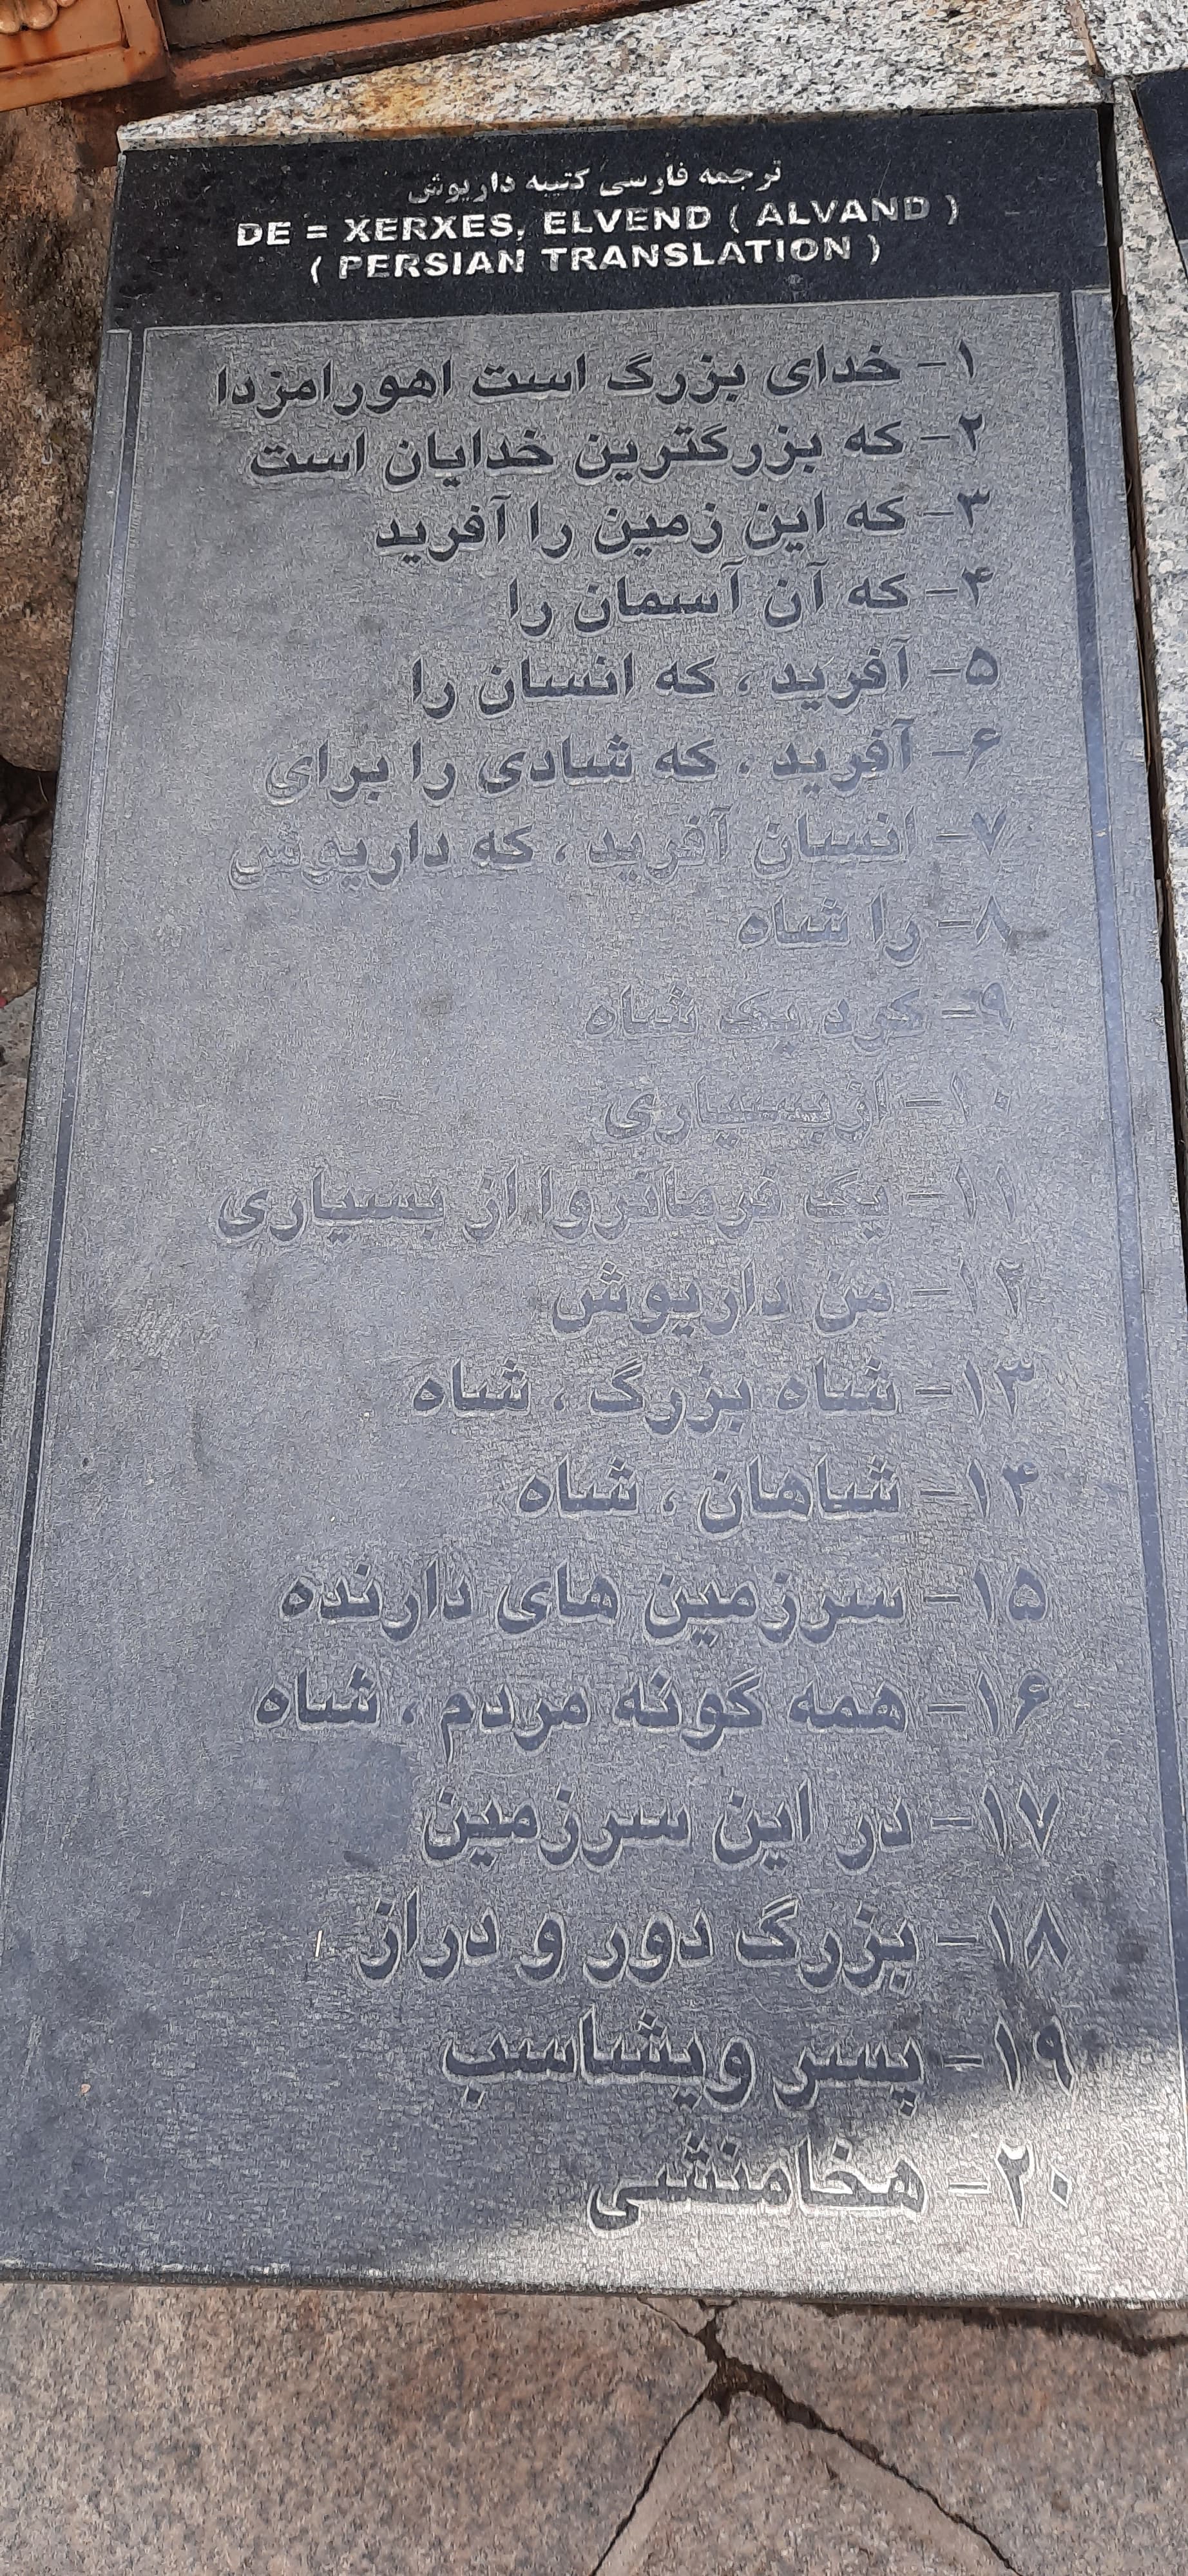 ترجمه فارسی کتیبه داریوش
DE = XERXES, ELVEND ( ALVAND )
( PERSIAN TRANSLATION )
۱- خدای بزرگ است اهورامزدا
۲- که بزرگترین خدایان است
۳- که این زمین را آفرید
۴- که آن آسمان را
۵- آفرید ، که انسان را
۶- آفرید ، که شادی را برای
۷- انسان آفرید ، که داریوش
۸- را شاه
۹- کرد یک شاه
۱۰- از بسیاری
۱۱- یک فرمانروا از بسیاری
۱۲- من داریوش
۱۳- شاه بزرگ ، شاه
۱۴- شاهان ، شاه
۱۵- سرزمین های دارنده
۱۶- همه گونه مردم ، شاه
۱۷- در این سرزمین
۱۸- بزرگ دور و دراز
۱۹- پسر ویشاسب
۲۰- هخامنشی